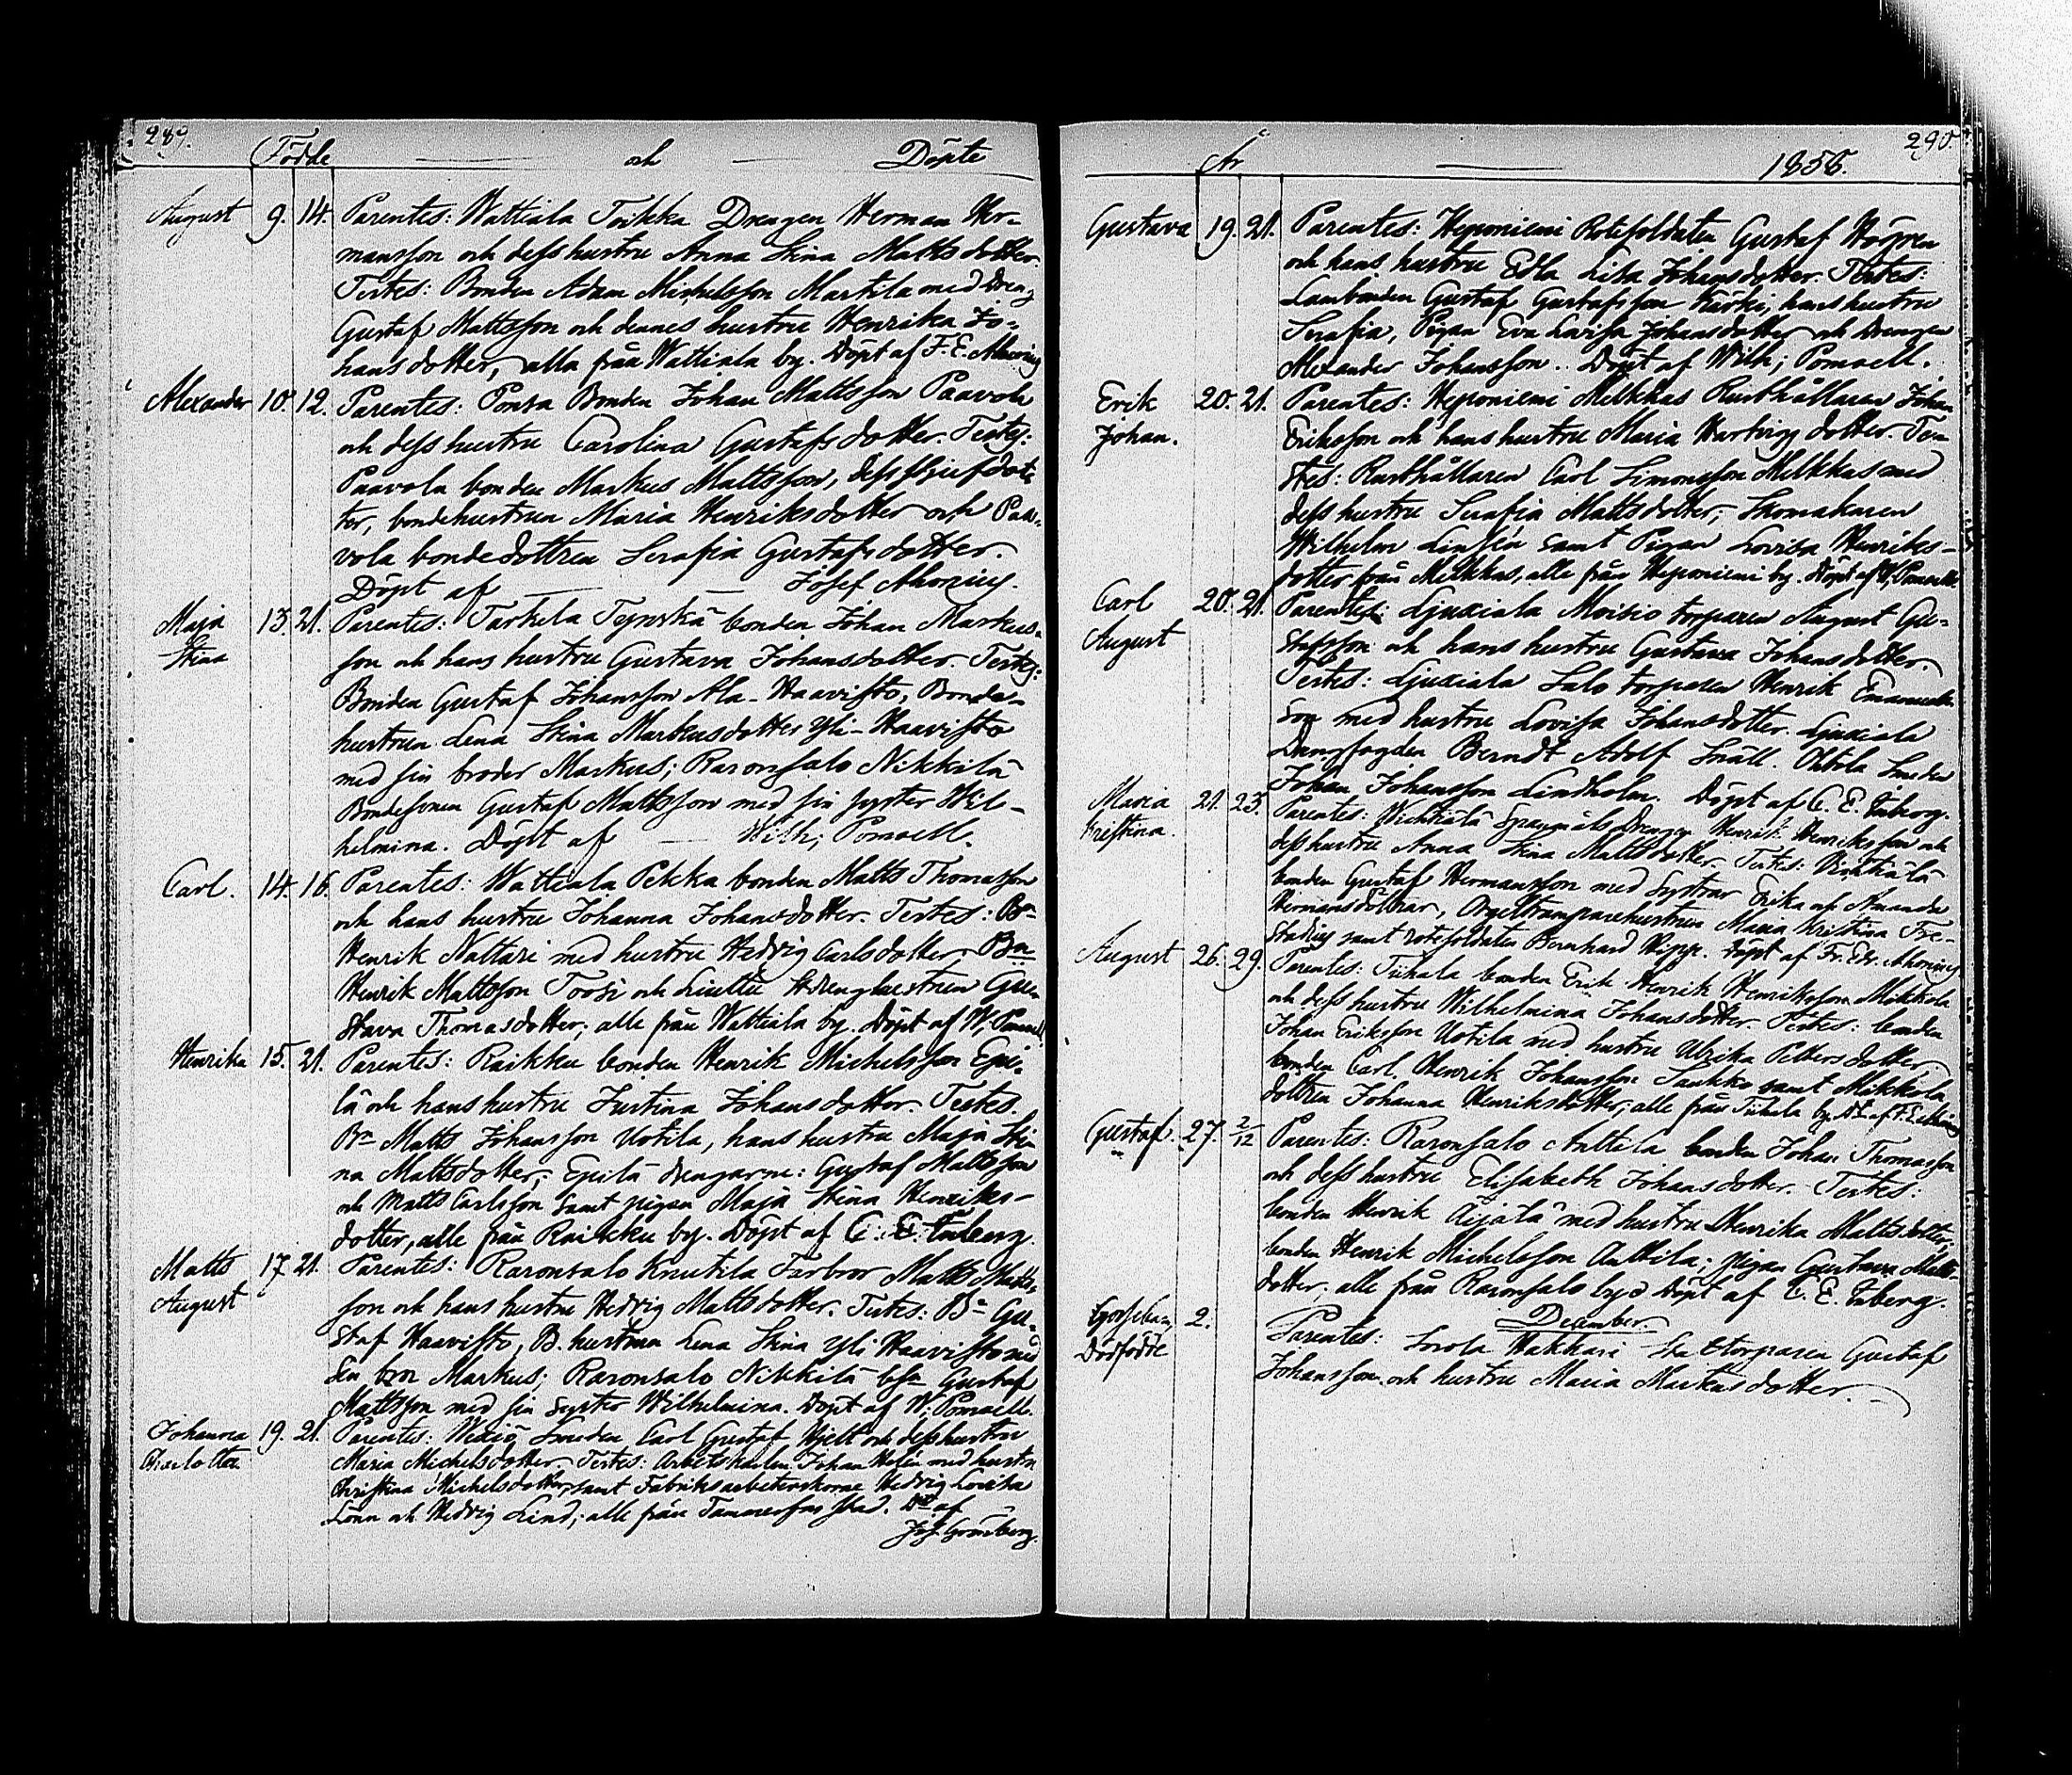 289.
Födde och Döpte
August 9. 14. Parentes: Wattiala Toikka Drengen Herman Her-
mansson och dess hustru Anna Stina Matts dotter.
Testes: Bonden Adam Michelsson Martila med Dreng
Gustaf Mattsson och dennes hustru Henrika Jo-
hansdotter, alla från Wattiala by. Döpt af F. E. Ahonius
Alexander 10. 12. Parentes: Ponsa Bonden Johan Mattsson Paavola
och dess hustru Carolina Gustafs dotter. Testes:
Paavola bonden Markus Mattsson, dess stjufdot-
ter, bondehustrun Maria Henriksdotter och Paa-
vola bondedottren Serafia Gustafsdotter.
Döpt af Josef Ahonius.
Maja Stina 13. 21. Parentes: Tarkela bonden Johan Markus-
son och hans hustru Gustava Johansdotter. Testes:
Bonden Gustaf Johansson Ala-Haavisto, Bonde-
hustrun Lena Stina Markusdotter Yli-Haavisto
med sin broder Markus; Raronsalo Nikkilä
Bondesonen Gustaf Mattsson med sin syster Wil-
helmina. Döpt af Wilh; Pomoell.
Carl. 14. 16. Parentes: Wattiala Pekka bonden Matts Thomasson
och hans hustru Johanna Johansdotter. Testes: Bn
Henrik Nattari med hustru Hedvig Carlsdotter; Bn
Henrik Mattsson Toosi och drenghustrun Gu-
stava Thomasdotter; alle från Wattiala by. Döpt af W; Pomoell
Henrika 15. 21. Parentes: Raikku bonden Henrik Michelsson Epi-
lä och hans hustru Justina Johansdotter. Testes.
Bn Matts Johansson Uotila, hans hustru Maja Sti-
na Mattsdotter; Epilä drengarne: Gustaf Mattsson
och Matts Carlsson samt pigan Maja Stina Henriks-
dotter, alle från Raikku by. Döpt af C. E. Enberg.
Matts August 17. 21. Parentes: Raronsalo Knutila Farbror Matts Matts-
son och hans hustru Hedvig Mattsdotter. Testes: Bn Gu-
staf Haavisto, B. hustrun Lena Stina Yli Haavisto med
sin bror Markus; Raronsalo Nikkilä bsn Gustaf
Mattsson med sin syster Wilhelmina. Döpt af W; Pomoell.
Johanna Charlotta 19. 21. Parentes: Wexiö Smeden Carl Gustaf Hjelt och dess hustru
Maria Michelsdotter. Testes: Arbetskarlen Johan Helén med hustru
Christina Michelsdotter, samt Fabriksarbeterskorne Hedvig Lovisa
Lönn och Hedvig Lind; alle från Tammerfors stad. Dt af
Jos. Grönberg.
290.
År 1856.
Gustava 19. 21. Parentes: Heponiemi Rotesoldaten Gustaf Högren
och hans hustru Edla Lisa Johansdotter. Testes:
Lambonden Gustaf Gustafsson Kärki, hans hustru
Serafia, Pigan Eva Lovisa Johansdotter och Drengen
Alexander Johansson. Döpt af Wilh; Pomoell.
Erik Johan. 20. 21. Parentes: Heponiemi Melkkas Rusthållaren Johan
Eriksson och hans hustru Maria Hartvigsdotter. Te-
stes: Rusthållaren Carl Simonsson Melkkas med
dess hustru Serafia Mattsdotter; Skomakaren
Wilhelm Linsén samt Pigan Lovisa Henriks-
dotter från Melkkas, alle från Heponiemi by. Döpt af W; Pomoell
Carl August 20. 21. Parentes: Ljuxiala Moisio torparen August Gu-
stafsson och hans hustru Gustava Johansdotter.
Testes: Ljuxiala Salo torparen Henrik Emanuels-
son med hustru Lovisa Johansdotter. Ljuxiala
Berndt Adolf Snäll. Ohtola Smeden
Johan Johansson Lindholm. Döpt af C. E. Enberg.
Maria Kristina. 21. 23. Parentes: Wehkälä Drengen Henrik Henriksson och
dess hustru Anna Stina Mattsdotter. Testes:
bonden Gustaf Hermansson med Systrar Erika och Amanda
Hermansdöttrar, Orgeltramparehustrun Maria Kristina Fre-
stadius samt rotesoldaten Bernhard Hipp. Döpt af Fr. Edv. Ahonius
August 26. 29. Parentes: Tiihala bonden Erik Henrik Henriksson Mikkola
och dess hustru Wilhelmina Johansdotter. Testes: bonden
Johan Eriksson Uotila med hustru Ulrika Petters dotter,
bonden Carl Henrik Johansson Saukko samt Mikkola
dottren Johanna Henriksdotter; alle från Tiihala by.
Gustaf. 27. 2/12 Parentes: Raronsalo Anttila bonden Johan Thomasson
och dess hustru Elisabeth Johansdotter. Testes:
bonden Henrik Äijälä med hustru Henrika Mattsdotter;
bonden Henrik Michelsson Anttila; pigan Gustava Matts-
dotter, alle från Raronsalo by. Döpt af C. E. Enberg.
December.
Dödfödde 2. Parentes: Sorola Hakkari torparen Gustaf
Johansson och hustru Maria Markusdotter.